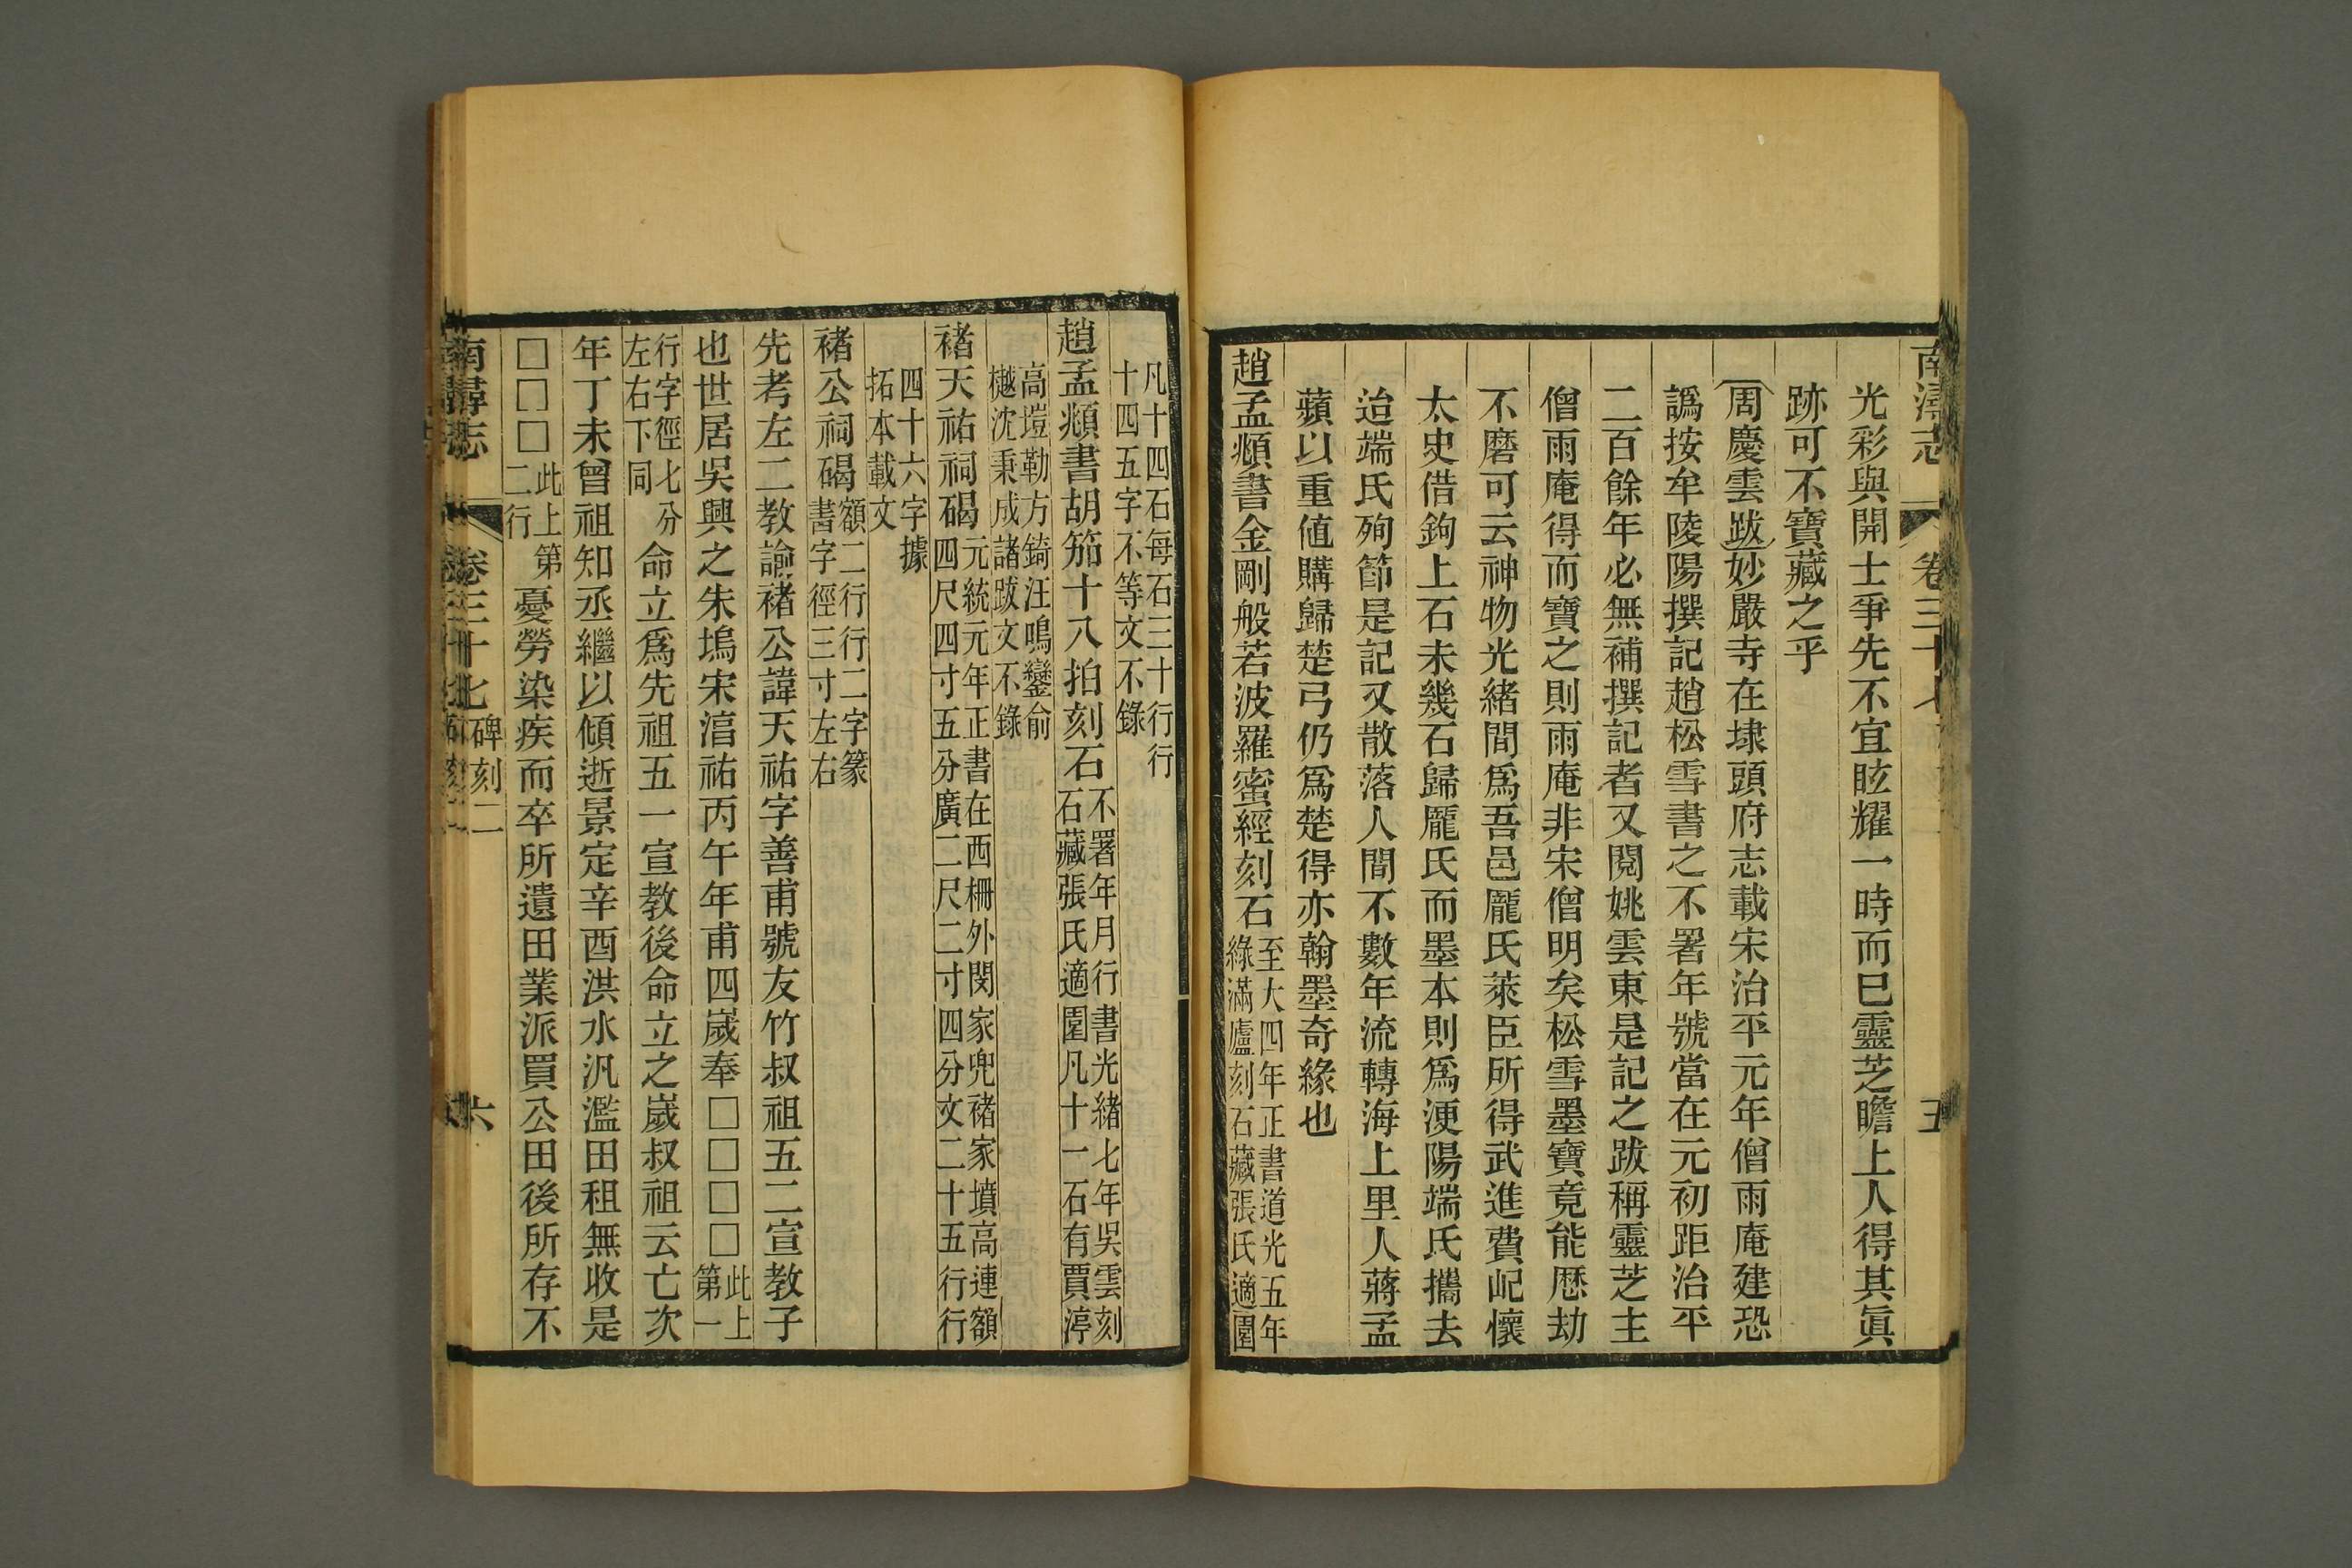 南潯志
卷三十七
五
光彩與開士爭先不宜眩耀一時而巳靈芝瞻上人得其眞
跡可不寶藏之乎
周慶雲跋妙嚴寺在埭頭府志載宋治平元年僧雨庵建恐
譌按牟陵陽撰記趙松雪書之不署年號當在元初距治平
二百餘年必無補撰記者又閱姚雲東是記之跋稱靈芝主
僧雨庵得而寶之則雨庵非宋僧明矣松雪墨寶竟能歷劫
不磨可云神物光緒間爲吾邑龐氏萊臣所得武進費屺懷
太史借鉤上石未幾石歸龐氏而墨本則爲浭陽端氏攜去
迨端氏殉節是記又散落人間不數年流轉海上里人蔣孟
蘋以重値購歸楚弓仍爲楚得亦翰墨奇緣也
趙孟頫書金剛般若波羅蜜經刻石至大四年正書道光五年
綠滿廬刻石藏張氏適園
凡十四石每石三十行行
十四五字不等文不錄
趙孟頫書胡笳十八拍刻石不署年月行書光緒七年吳雲刻
石藏張氏適園凡十一石有賈渟
高塏勒方錡汪鳴鑾俞
樾沈秉成諸跋文不錄
褚天祐祠碣元統元年正書在西柵外閔家兜褚家墳高連額
四尺四寸五分廣二尺二寸四分文二十五行行
四十六字據
拓本載文
褚公祠碣額二行行二字篆
書字徑三寸左右
先考左二教諭褚公諱天祐字善甫號友竹叔祖五二宣教子
也世居吳興之朱塢宋淯祐丙午年甫四嵗奉□□□□此上
第一
行字徑七分
左右下同命立爲先祖五一宣教後命立之嵗叔祖云亡次
年丁未曾祖知丞繼以傾逝景定辛酉洪水汎濫田租無收是
□□□此上第
二行憂勞染疾而卒所遺田業派買公田後所存不
南潯志
卷三十七
碑刻二
六